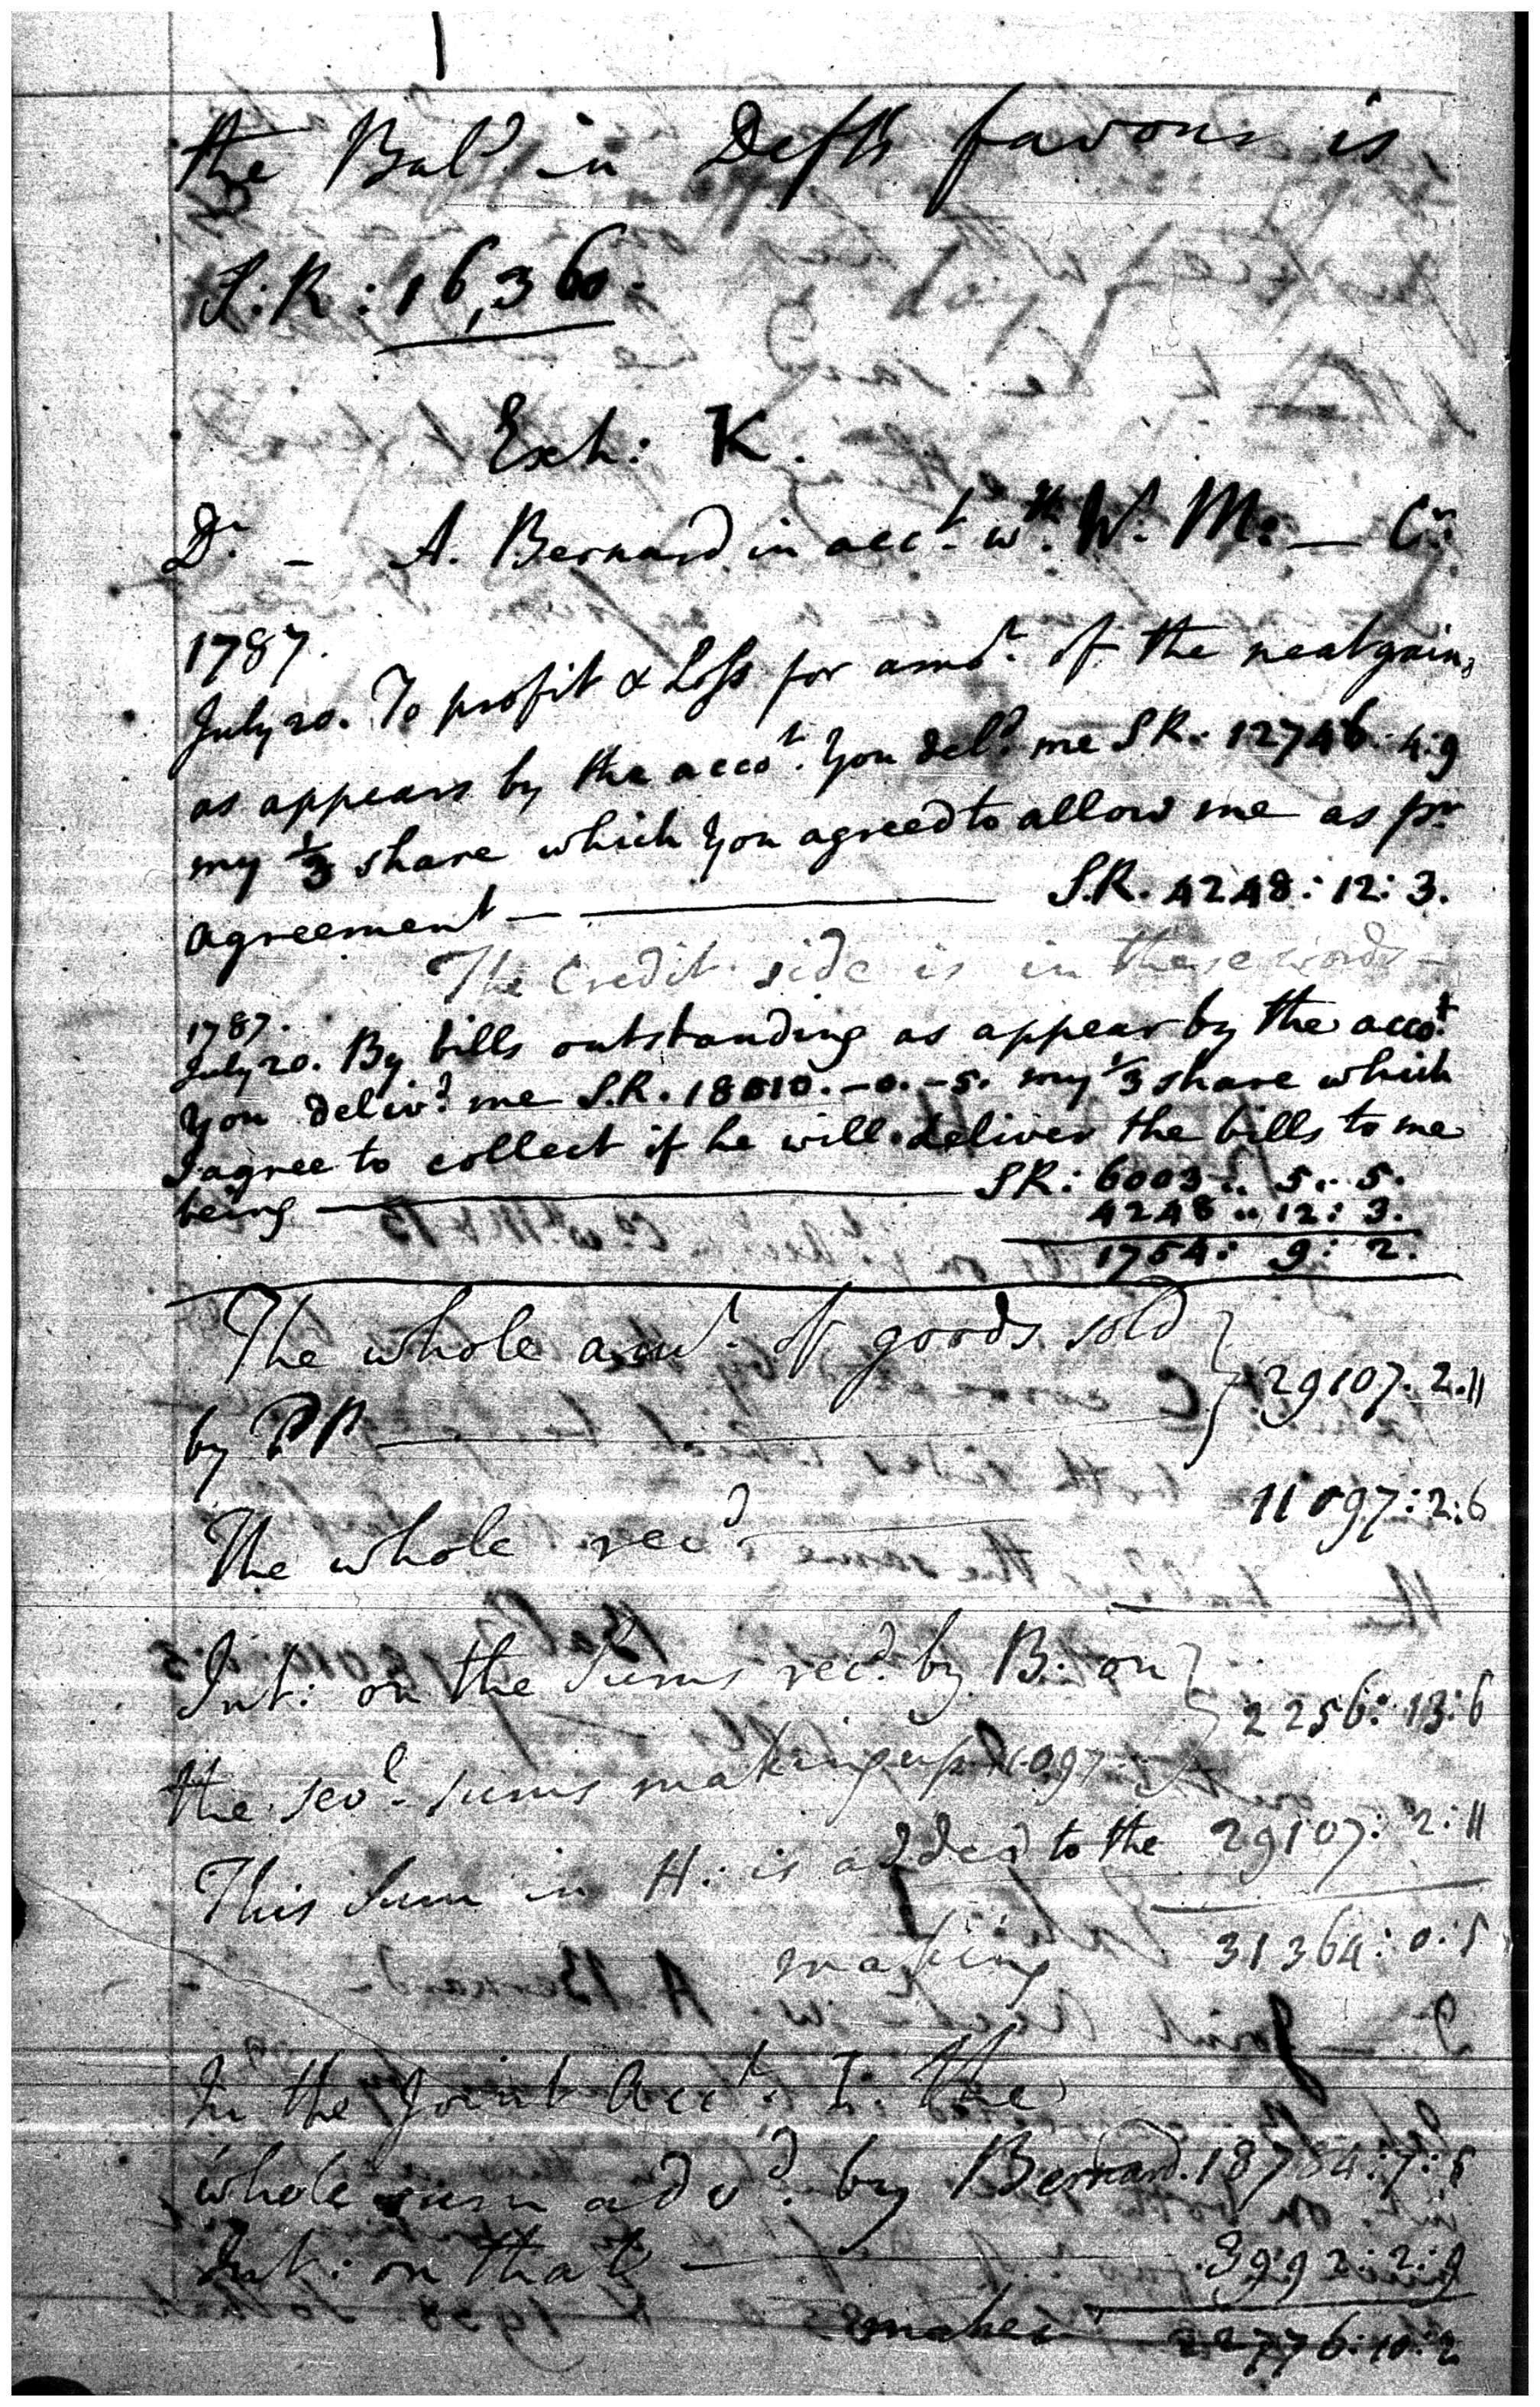 the Bal.d in Defts favour is
S:R: 16,360.
Exh: K.
Dr. - A. Bernard in acct. wth. W. M: — Cr.
1787.
July 20. To profit & Loss for amot. of the neat gain,
as appears by the accot. You deld. me SR. 12746: 4:9
my 1/3 share which You agreed to allow me as pr
agreement — S.R. 4248: 12: 3.
The Credit side is in these words —
1787.
July 20. By bills outstanding as appear by the accot.
You delivd. me S.R. 18010. -0. -5. my 1/3 share which
I agree to collect if he will deliver the bills to me
being — SR: 6003.. 5.. 5.
4248 .. 12: 3.
1754: 9: 2.
The whole amt. of goods sold
by PP — 29107. 2.11
The whole recd. — 11097:2:6
Int: on the Sums recd. by B: on
the sevl. sums making up 11097 — 2256: 13:6
This Sum in H. is added to the 29107: 2:11
making 31364: 0:5
In the Joint Acct. I. the
whole sum advd. by Bernard. 18784:7:5
Int: on that — 3992:2:9
makes 22776:10:2